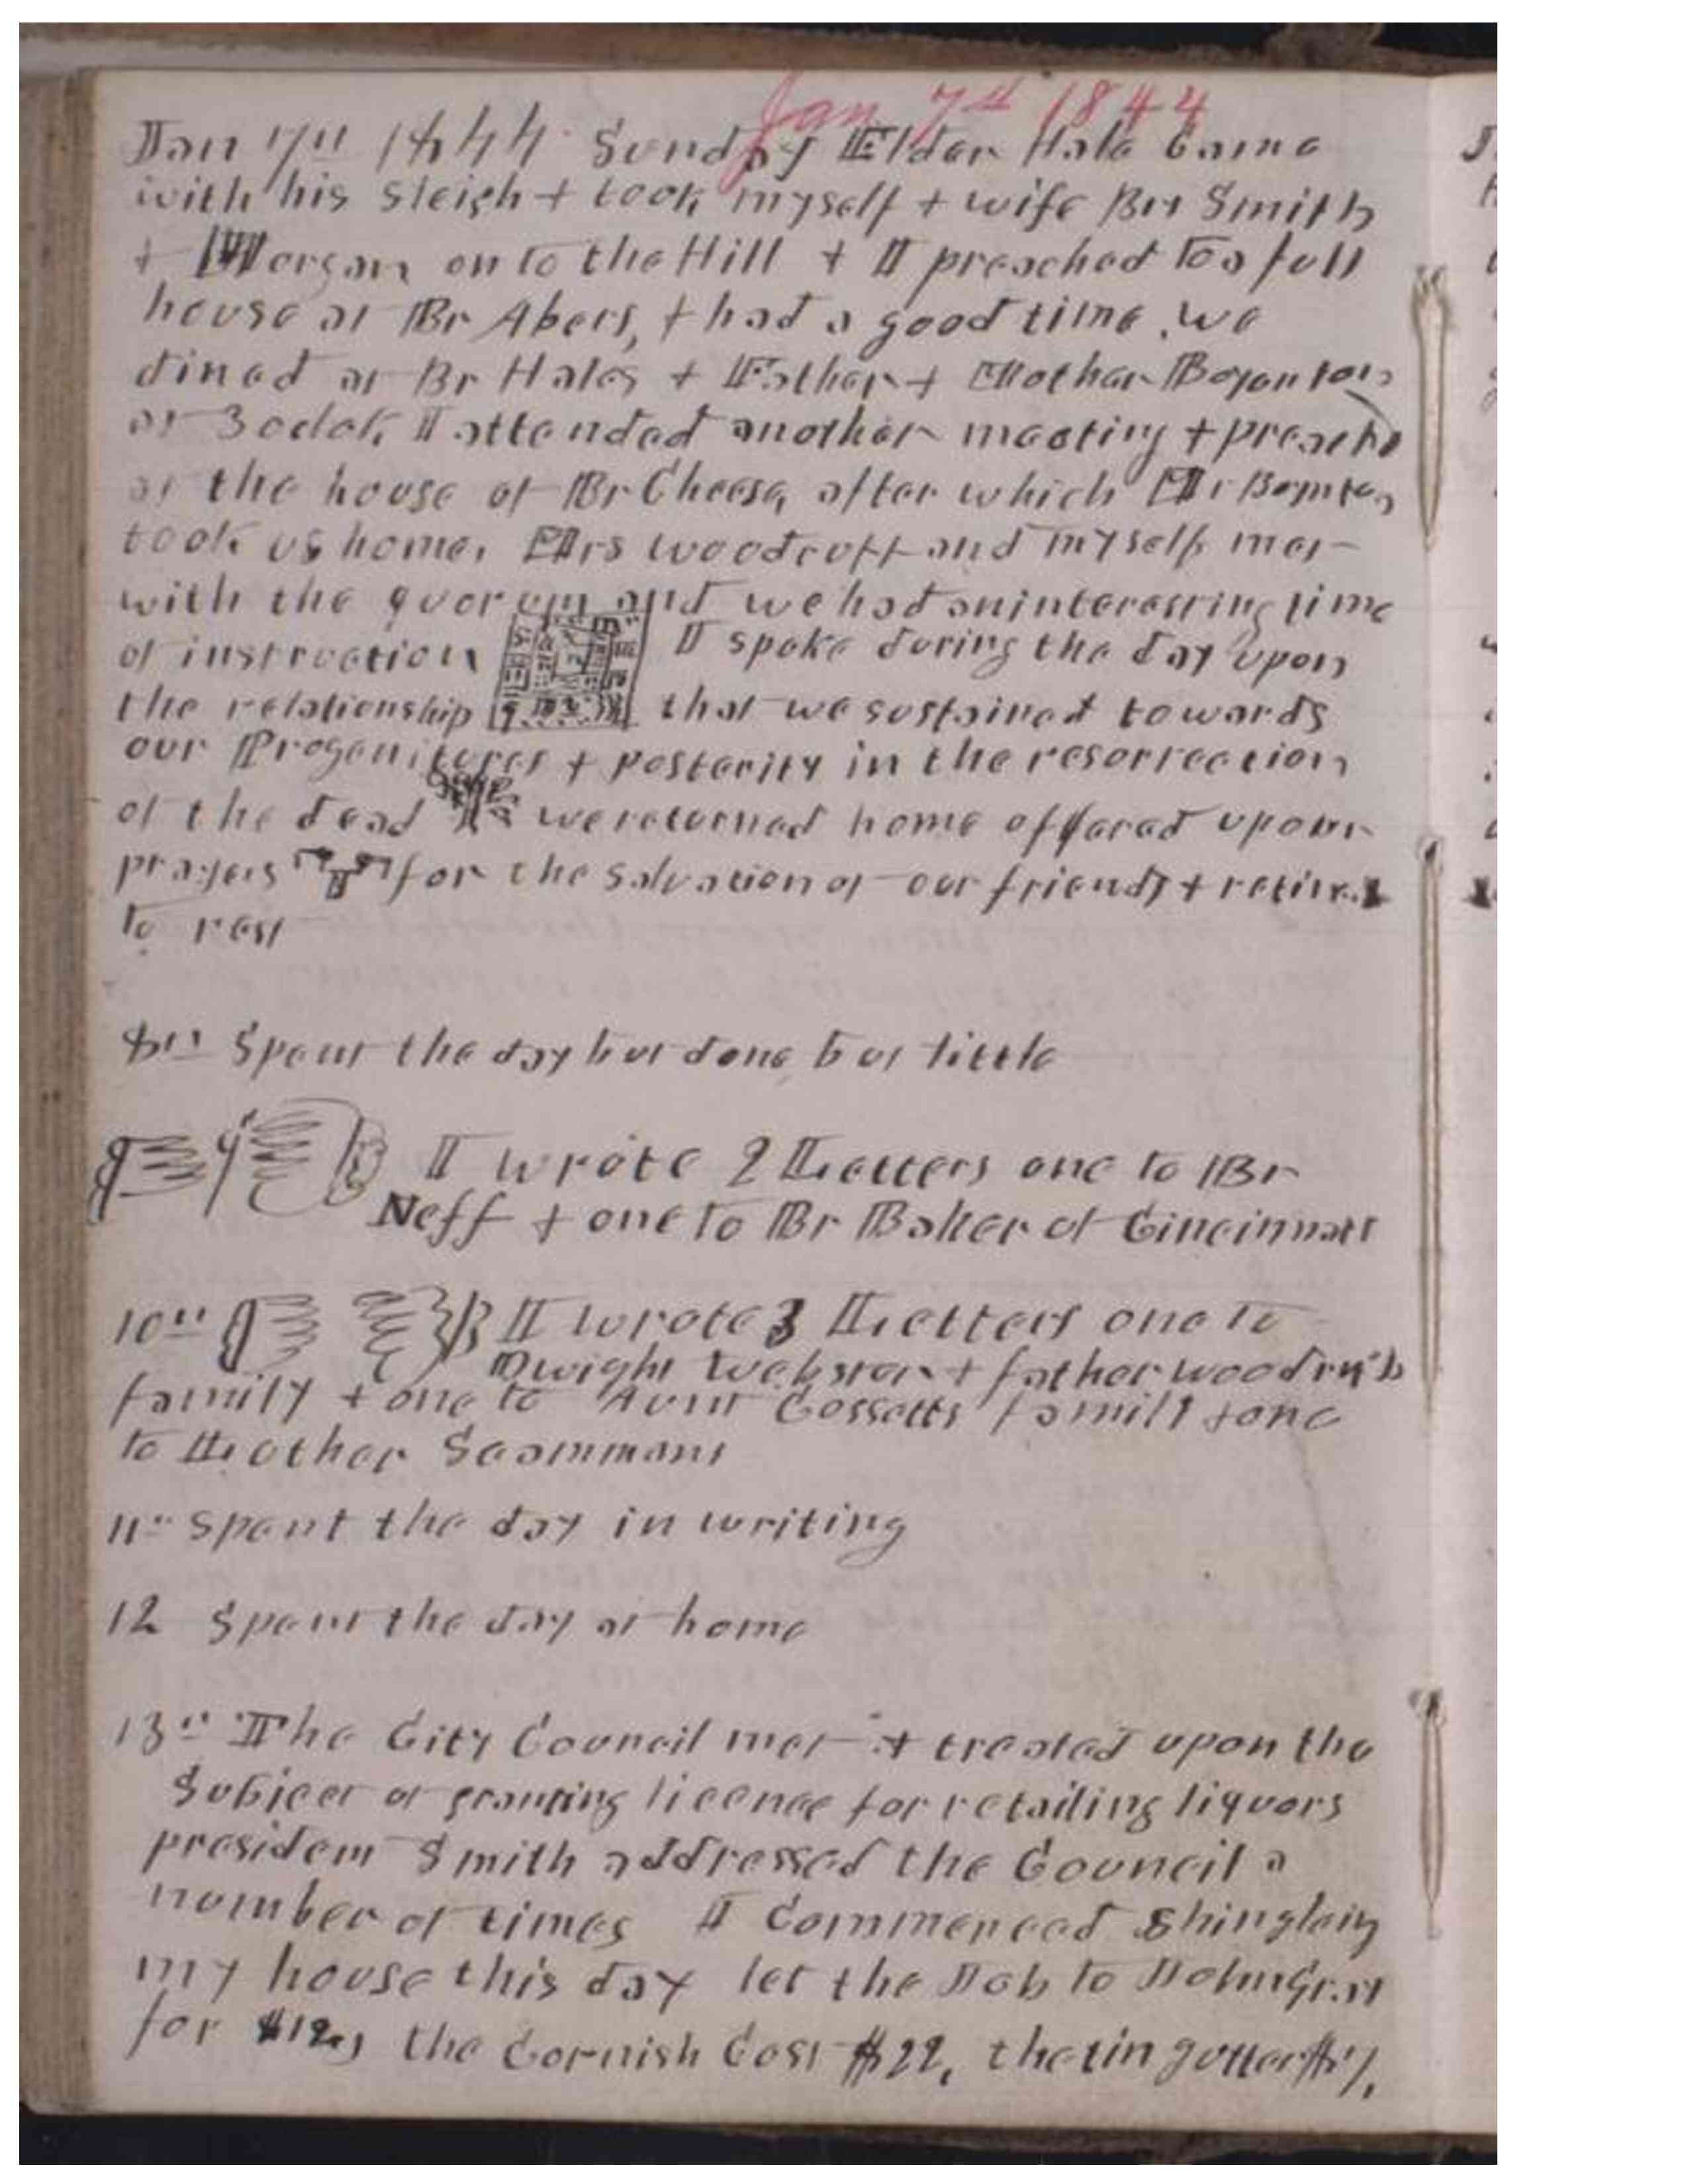 Jan 7th 1844
Jan 7th 1844 Sunday Elder Hale Came
with his sleigh + took myself + wife Br Smith
+ Morgan on to the Hill + I preached to a full
house at Br Abers, + had a good time. we
dined at Br Hales + Father + Mother Boyantons
at 3 oclok I attended another meeting + preachd
at the house of Br Cheese, after which Mr Boynton
took us home, Mrs Woodruff and myself met
with the quorum and we had an interesting time
of instruction I spoke during the day upon
the relationship that we sustained towards
our Progenitures + posterity in the resurrection
of the dead we returned home offered up our
prayers for the salvation of our friends + retired
to rest
8th Spent the day but done but little
9 I wrote 2 Letters one to Br
Neff + one to Br Baker of Cincinnati
10th I wrote 3 Letters one to
Dwight Webster + father Woodruff's
family + one to Aunt Cossetts family + one
to Mother Seammans
11th Spent the day in writing
12 Spent the day at home
13th The City Council met + treated upon the
Subject of granting licence for retailing liquors
president Smith addressed the Council a
number of times I Commenced Shingleing
my house this day let the Job to John Gray
for $12, the Cornish Cost $22, the tin gutter $7,